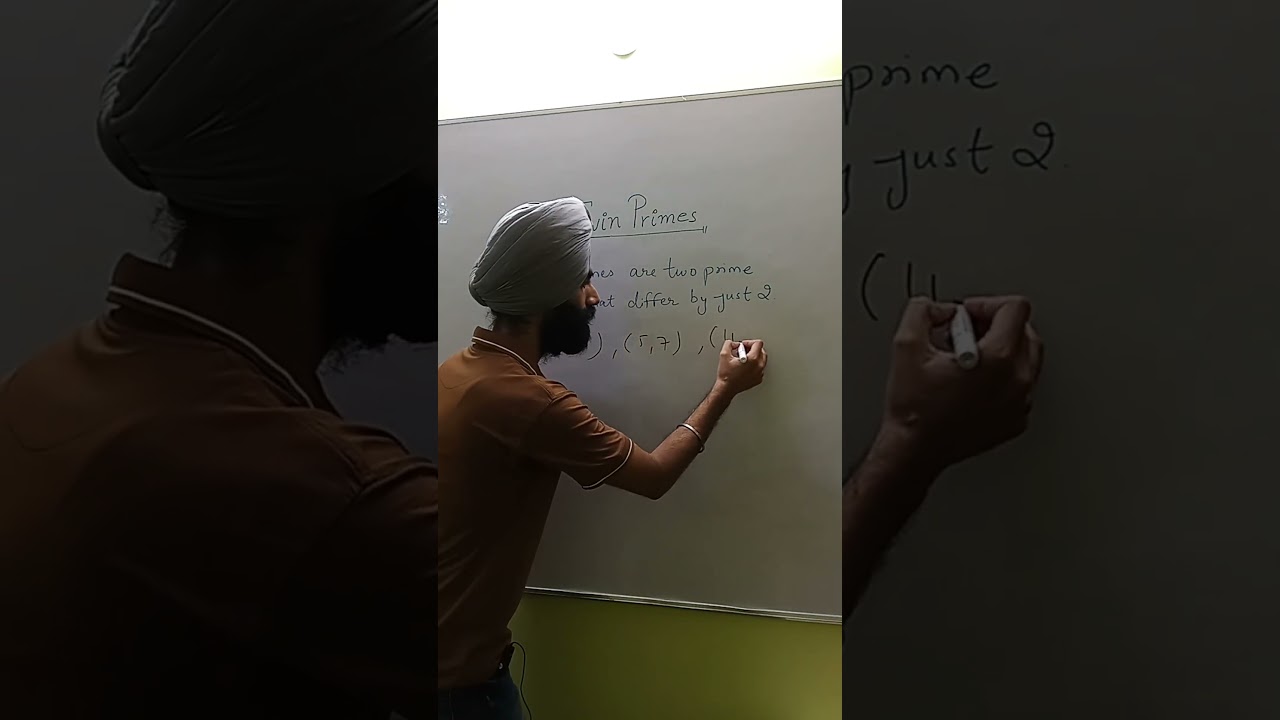 Twin Primes
are two prime
differ by just 2
, (5,7) , (11,
prime
just 2